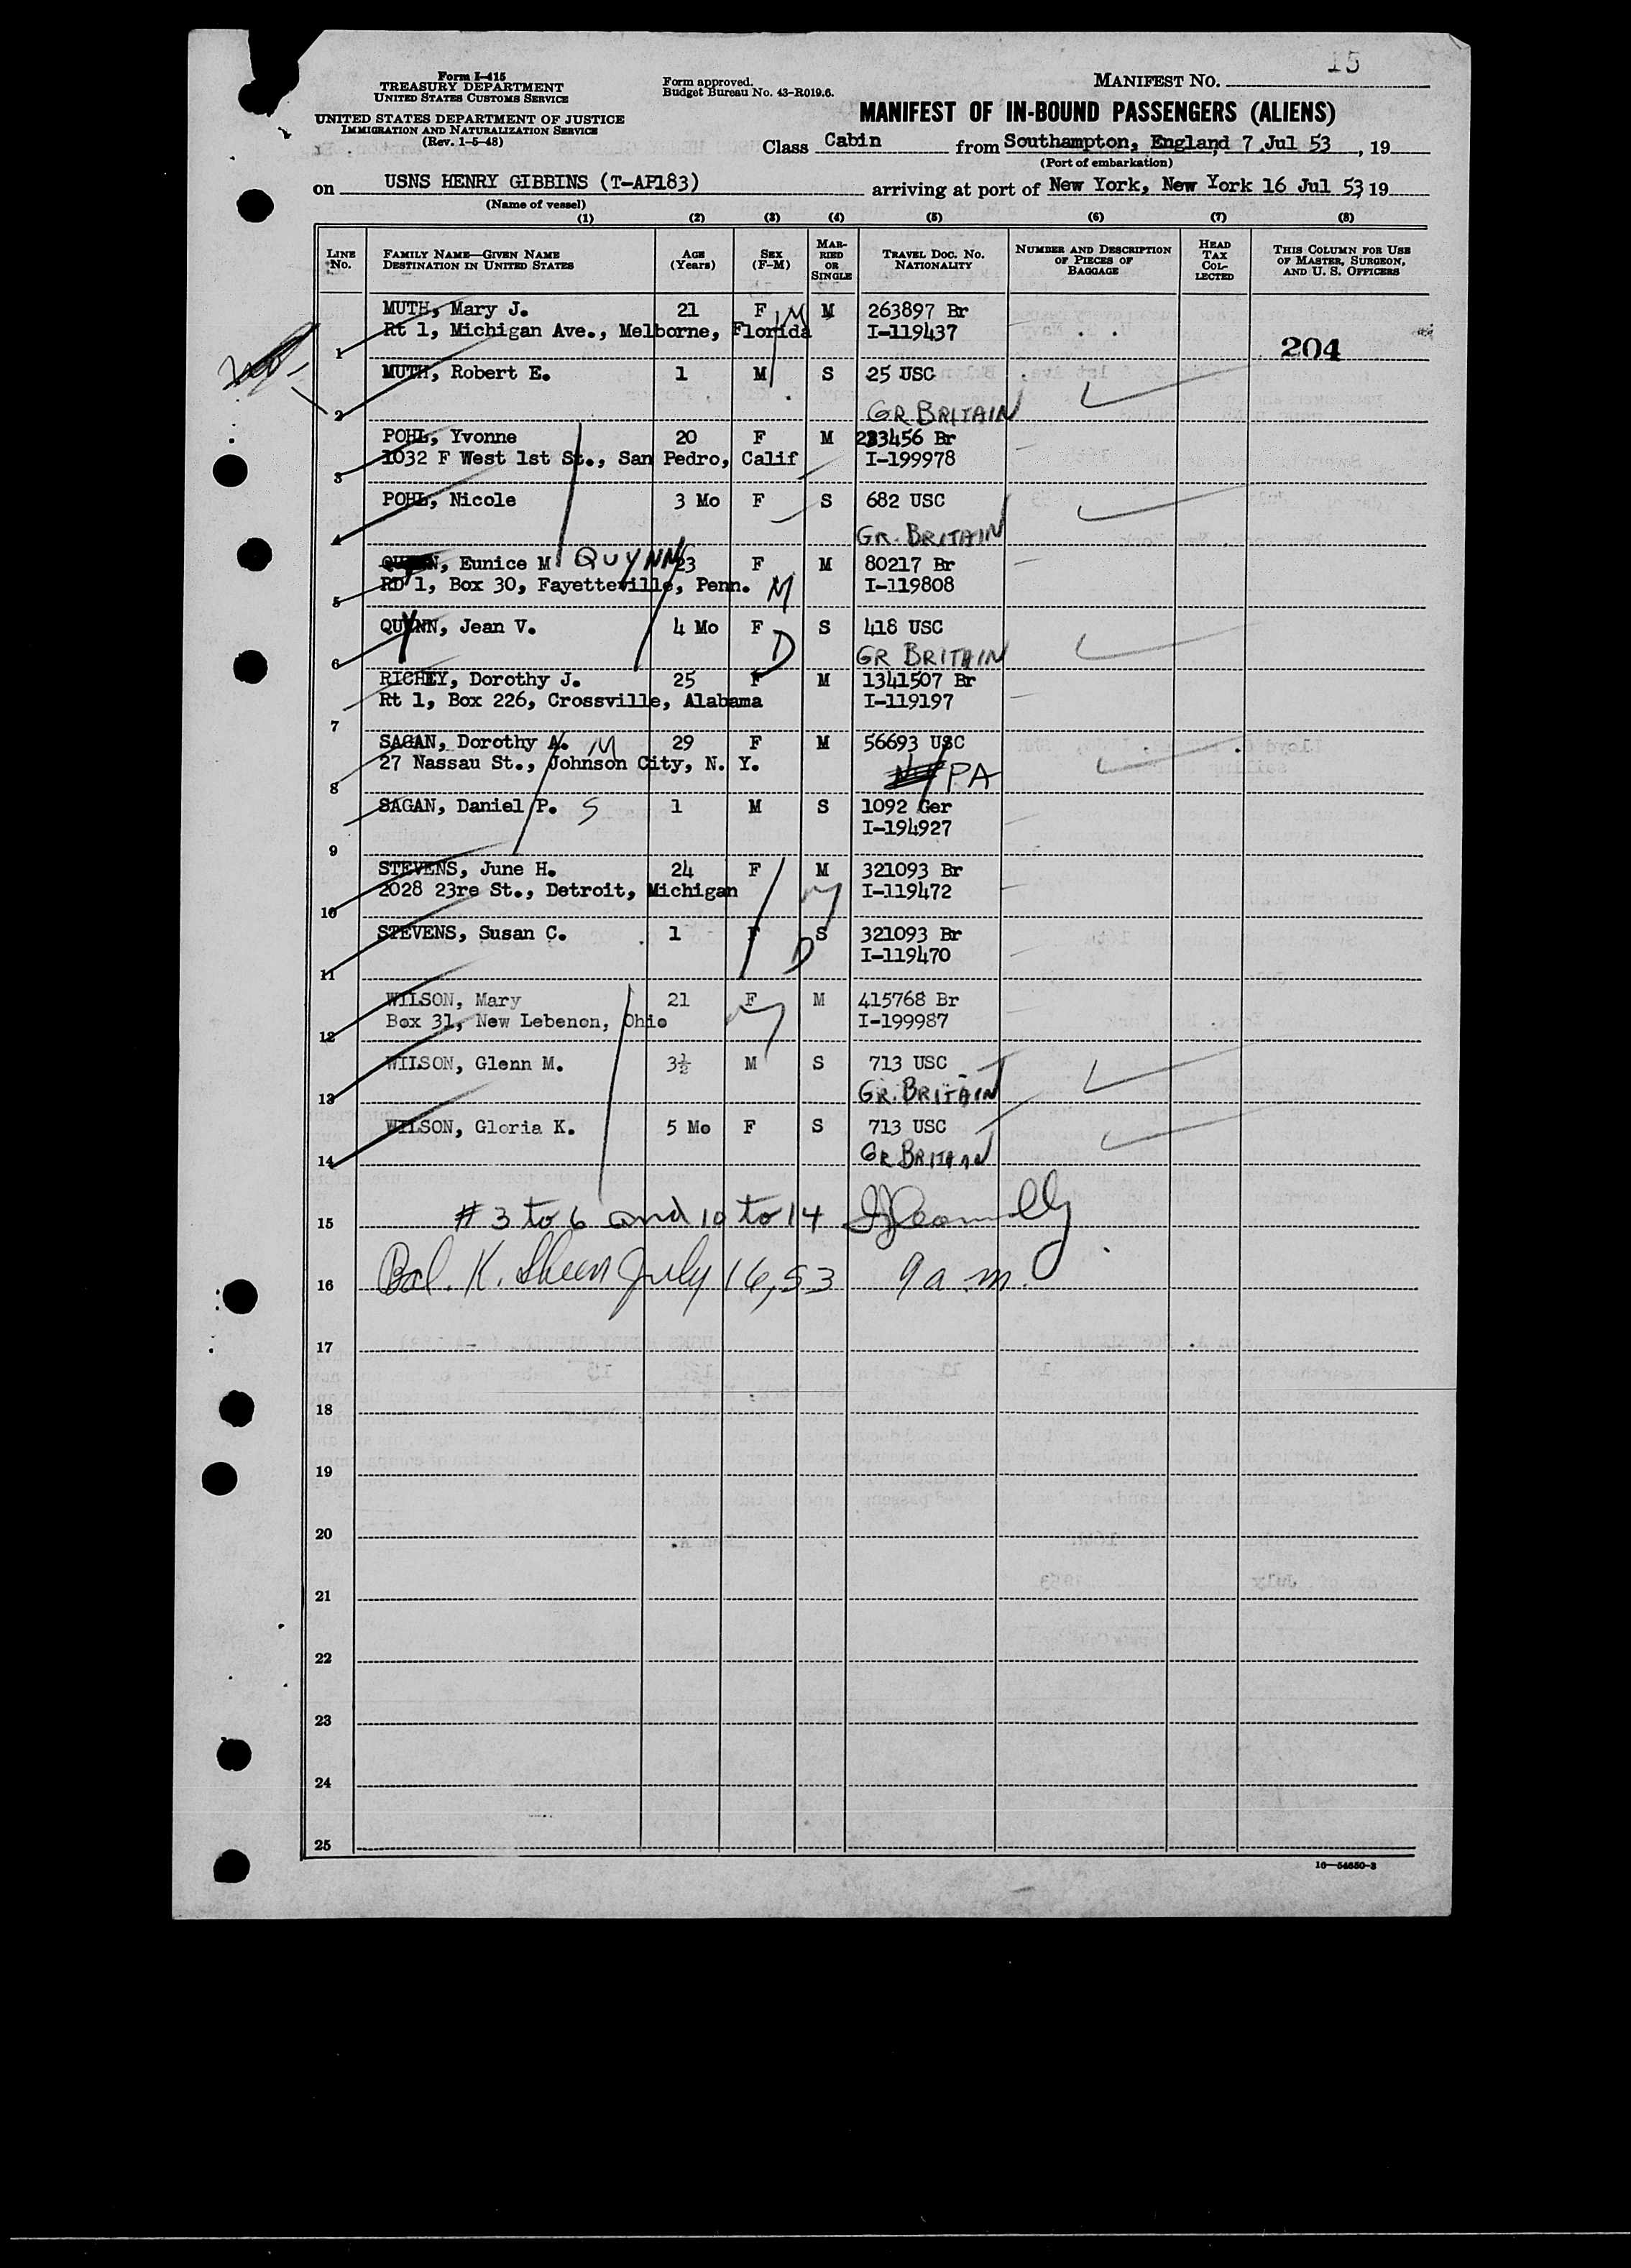 15
Form I-415
TREASURY DEPARTMENT
UNITED STATES CUSTOMS SERVICE
UNITED STATES DEPARTMENT OF JUSTICE
IMMIGRATION AND NATURALIZATION SERVICE
(Rev. 1-5-48)
Form approved.
Budget Bureau No. 43-R019.6.
MANIFEST NO.
MANIFEST OF IN-BOUND PASSENGERS (ALIENS)
Class Cabin from Southampton, England 7 Jul 53, 19
(Port of embarkation)
on USNS HENRY GIBBINS (T-AP183) arriving at port of New York, New York 16 Jul 53 19
(Name of vessel)
(1) (2) (3) (4) (5) (6) (7) (8)
LINE No. FAMILY NAME—GIVEN NAME DESTINATION IN UNITED STATES AGE (Years) SEX (F-M) MARRIED OR SINGLE TRAVEL DOC. NO. NATIONALITY NUMBER AND DESCRIPTION OF PIECES OF BAGGAGE HEAD TAX COLLECTED THIS COLUMN FOR USE OF MASTER, SURGEON, AND U. S. OFFICERS
MUTH, Mary J. 21 F M M 263897 Br
1 Rt 1, Michigan Ave., Melborne, Florida I-119437 204
MUTH, Robert E. 1 M S 25 USC
2 GR BRITAIN
POHL, Yvonne 20 F M 233456 Br
3 1032 F West 1st St., San Pedro, Calif I-199978
POHL, Nicole 3 Mo F S 682 USC
4 GR. BRITAIN
, Eunice M QUYNN 23 F M 80217 Br
5 RD 1, Box 30, Fayetteville, Penn. M I-119808
QUYNN, Jean V. 4 Mo F S 418 USC
6 D GR BRITAIN
RICHEY, Dorothy J. 25 F M 1341507 Br
7 Rt 1, Box 226, Crossville, Alabama I-119197
SAGAN, Dorothy A. M 29 F M 56693 USC
8 27 Nassau St., Johnson City, N. Y. PA
SAGAN, Daniel P. S 1 M S 1092 Ger
9 I-194927
STEVENS, June H. 24 F M 321093 Br
10 2028 23re St., Detroit, Michigan M I-119472
STEVENS, Susan C. 1 F S 321093 Br
11 D I-119470
WILSON, Mary 21 F M 415768 Br
12 Box 31, New Lebenon, Ohio M I-199987
WILSON, Glenn M. 3½ M S 713 USC
13 GR. BRITAIN
WILSON, Gloria K. 5 Mo F S 713 USC
14 GR BRITAIN
15 # 3 to 6 and 10 to 14
16 Bal. K. Sheen July 16, 53 9 a.m.
17
18
19
20
21
22
23
24
25
16—54650-3